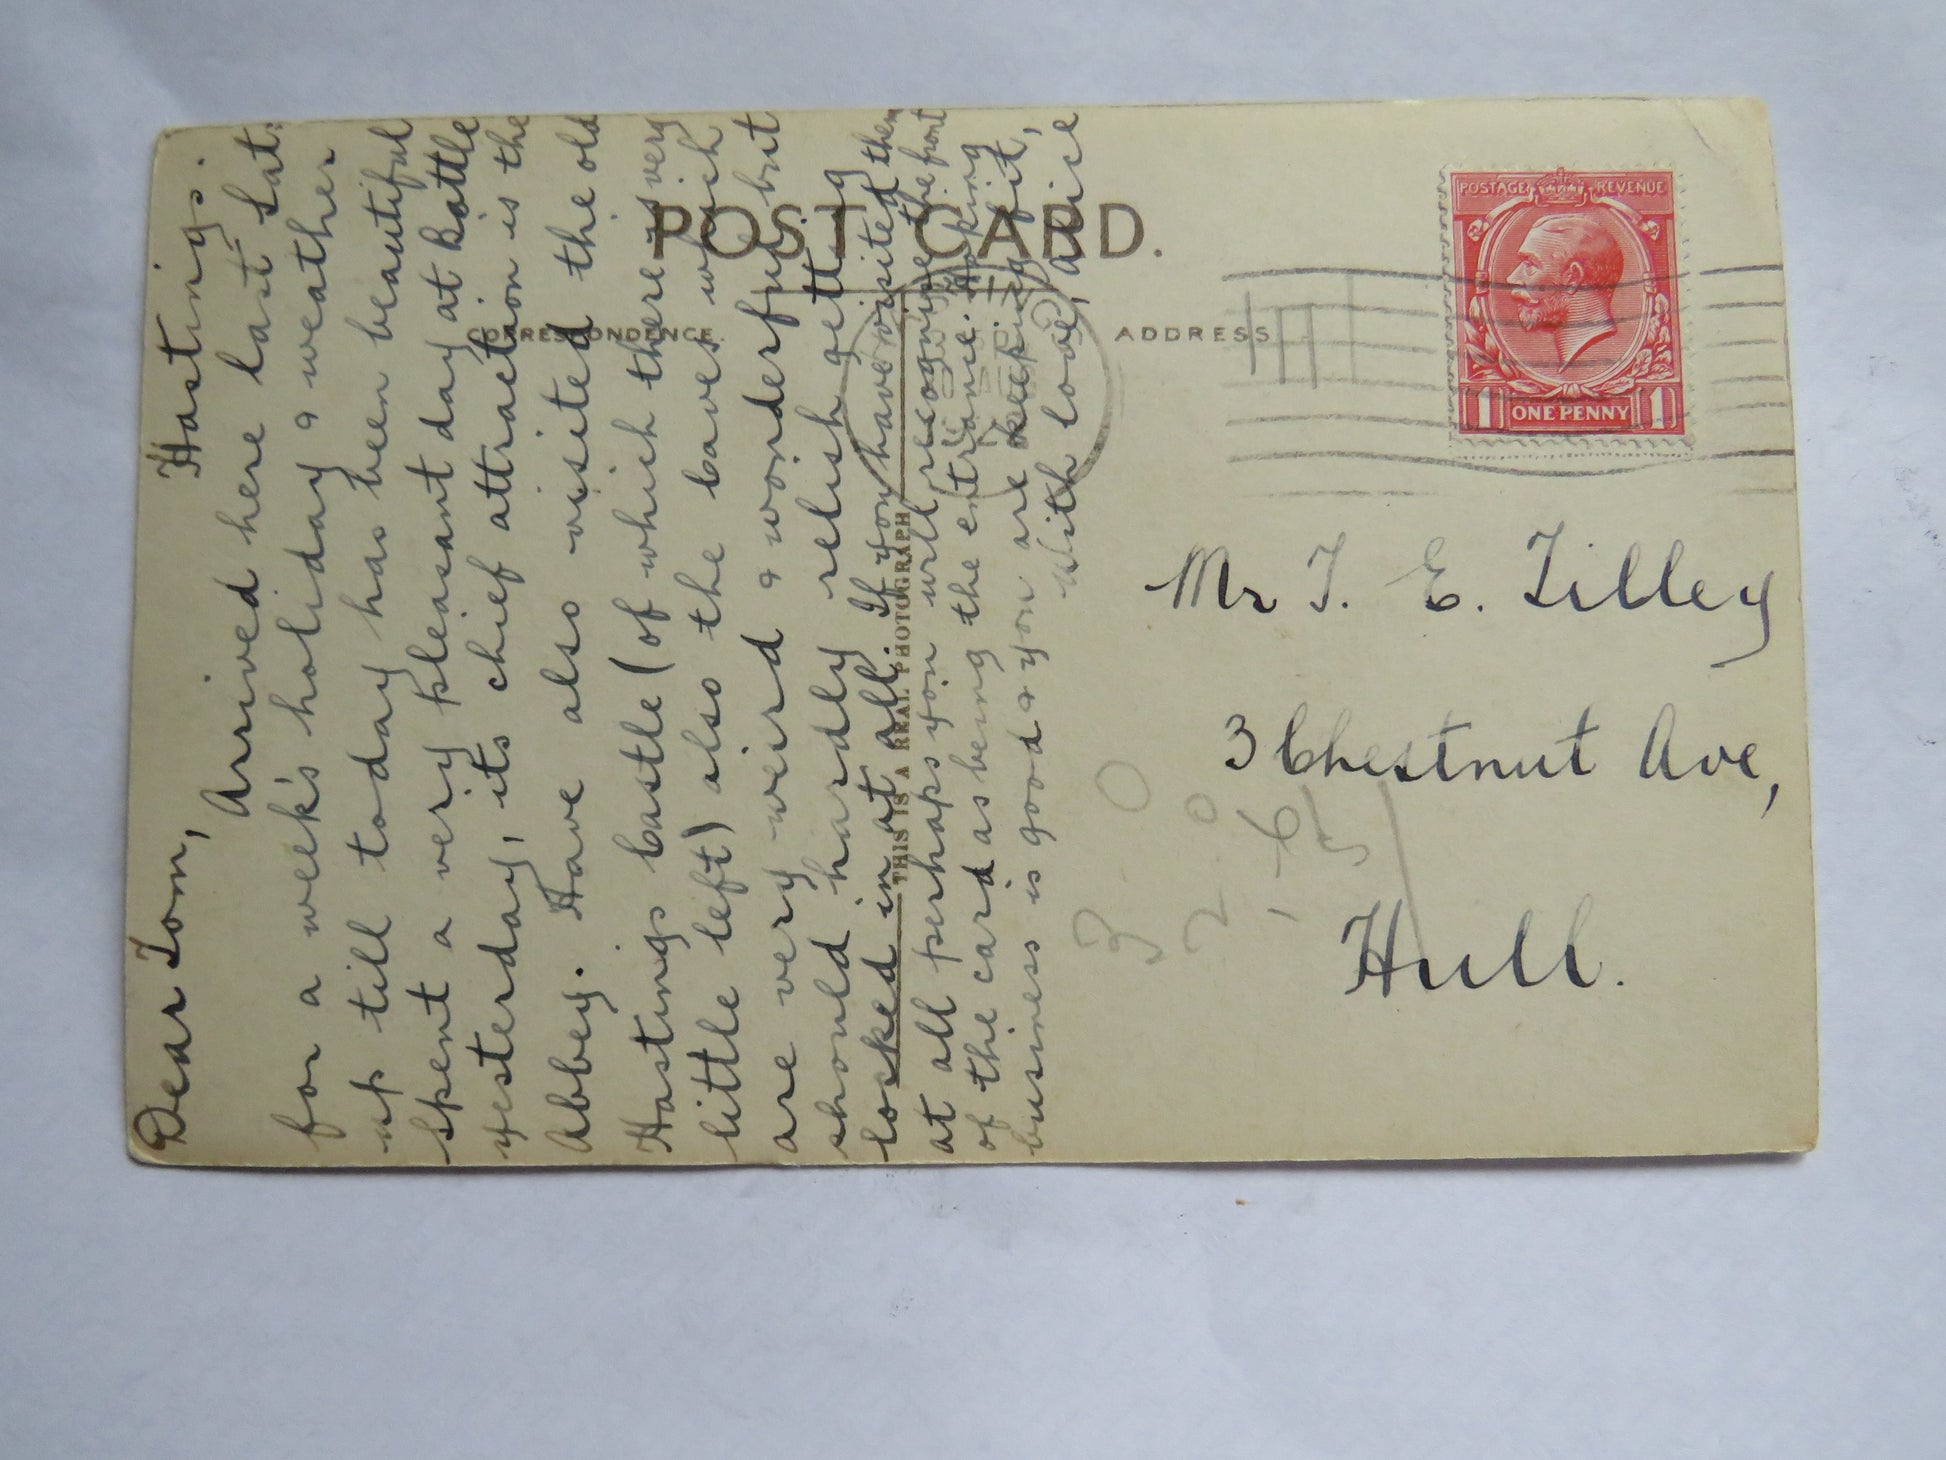 POST CARD.
CORRESPONDENCE
ADDRESS
THIS IS A REAL PHOTOGRAPH
POSTAGE REVENUE
1 ONE PENNY 1
Hastings.
Dear Tom,
Arrived here last Sat.
for a week's holiday & weather
up till today has been beautiful
spent a very pleasant day at Battle
yesterday, its chief attraction is the
Abbey. Have also visited the old
Hastings Castle (of which there is very
little left) also the Caves which
are very weird & wonderful but
should hardly relish getting
locked in at all. If you have visited them
at all perhaps you will recognise the front
of the card as being the entrance. Hoping
business is good & you are keeping fit,
With love, Alice
Mr T. E. Tilley
3 Chestnut Ave,
Hull.
3 0
2 0